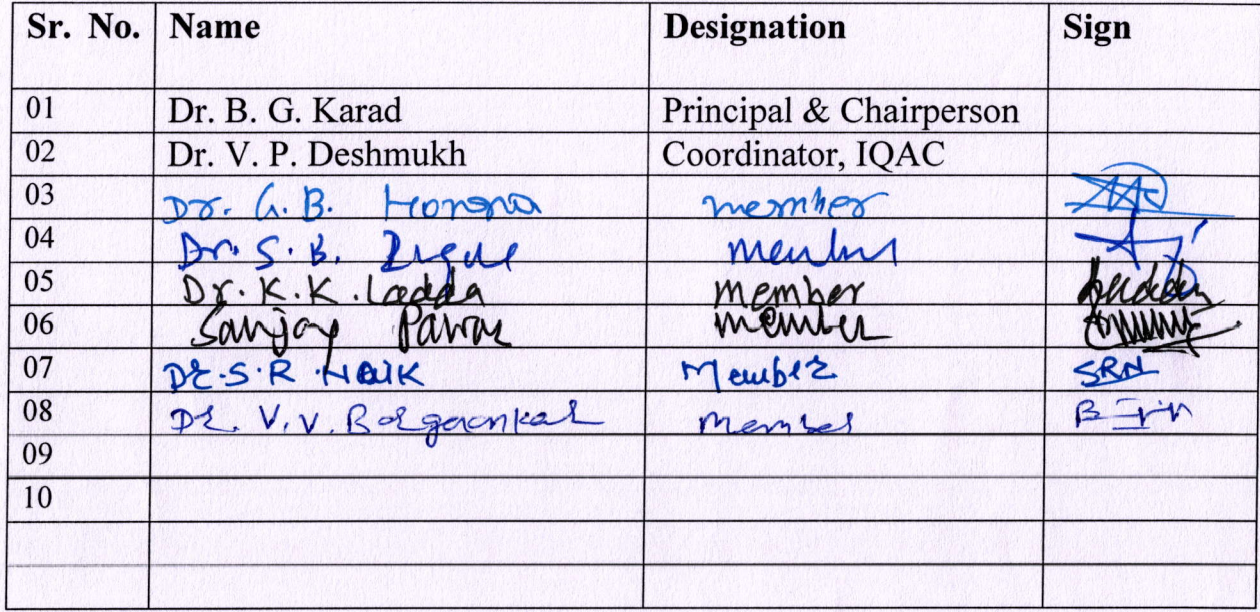 Sr. No. Name Designation Sign
01 Dr. B. G. Karad Principal & Chairperson
02 Dr. V. P. Deshmukh Coordinator, IQAC
03 Dr. G. B. member
04 Dr. S. B. member
05 Dr. K. K. Ladda member
06 Sanjay Pawar member
07 Dr. S. R. Naik Member SRN
08 Dr. V. V. Borgaonkar member
09
10